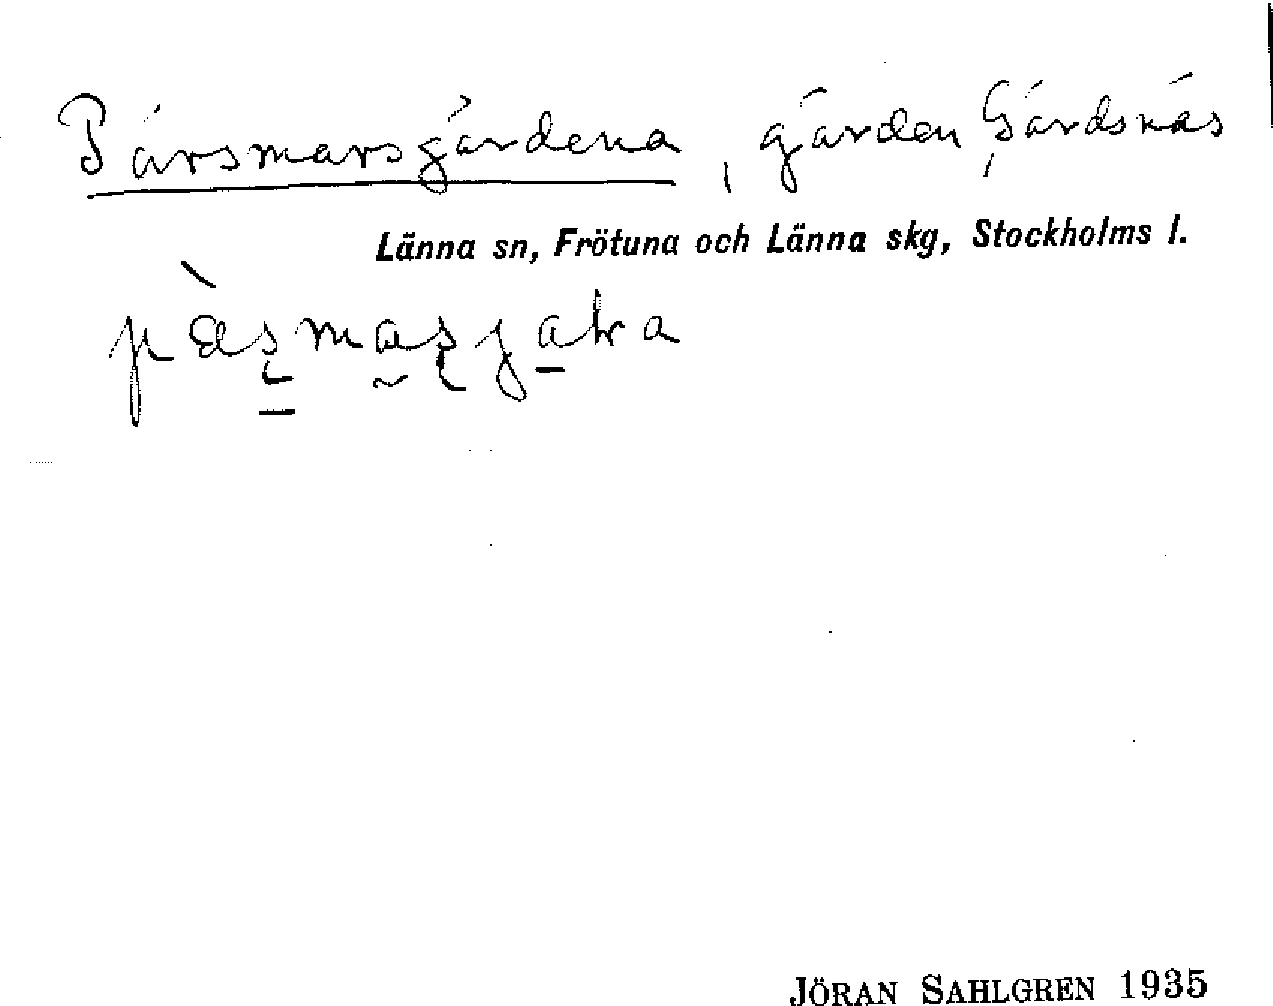 Pärsmarsgärdena, gärden, Gärdsnäs
Länna sn, Frötuna och Länna skg, Stockholms l.
JÖRAN SAHLGREN 1935